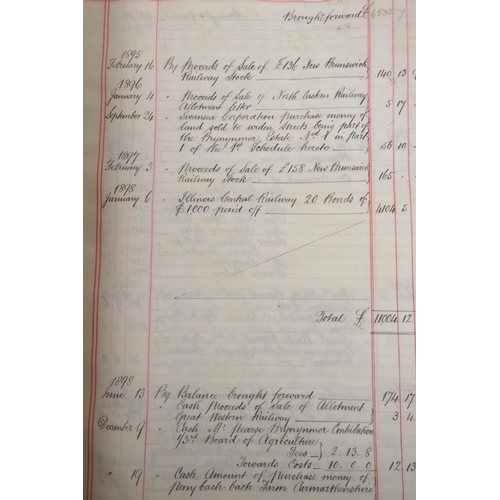 Brought forward £ 6532
1895
February 16 By Proceeds of Sale of £136 New Brunswick
Railway Stock 140 13
1896
January 4 " Proceeds of Sale of North Eastern Railway
Allotment letter 5 17
September 24 " Swansea Corporation purchase money of
land sold to widen Streets being part of
the Brynymor Estate Nº 1 in part
1 of the 1st Schedule hereto 56 10
1897
February 3 " Proceeds of Sale of £158 New Brunswick
Railway Stock 165
1898
January 6 " Illinois Central Railway 20 Bonds of
£1000 paid off 4104 5
Total £ 11004 12
1898
June 13 By Balance brought forward 174 17
" Cash Proceeds of Sale of Allotment
Great Western Railway 3 4
December 9 " Cash Mr Pearse Brynymor Contribution
1/3rd Board of Agriculture
Fees 2. 13. 8
Towards Costs 10. 0. 0 12 13
" 19 " Cash Amount of purchase money of
Farm Carmarthenshire